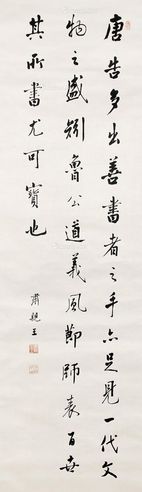 唐告多出善書者之手亦足見一代文
物之盛矧魯公道義風節師表百世
其所書尤可寶也
肅親王